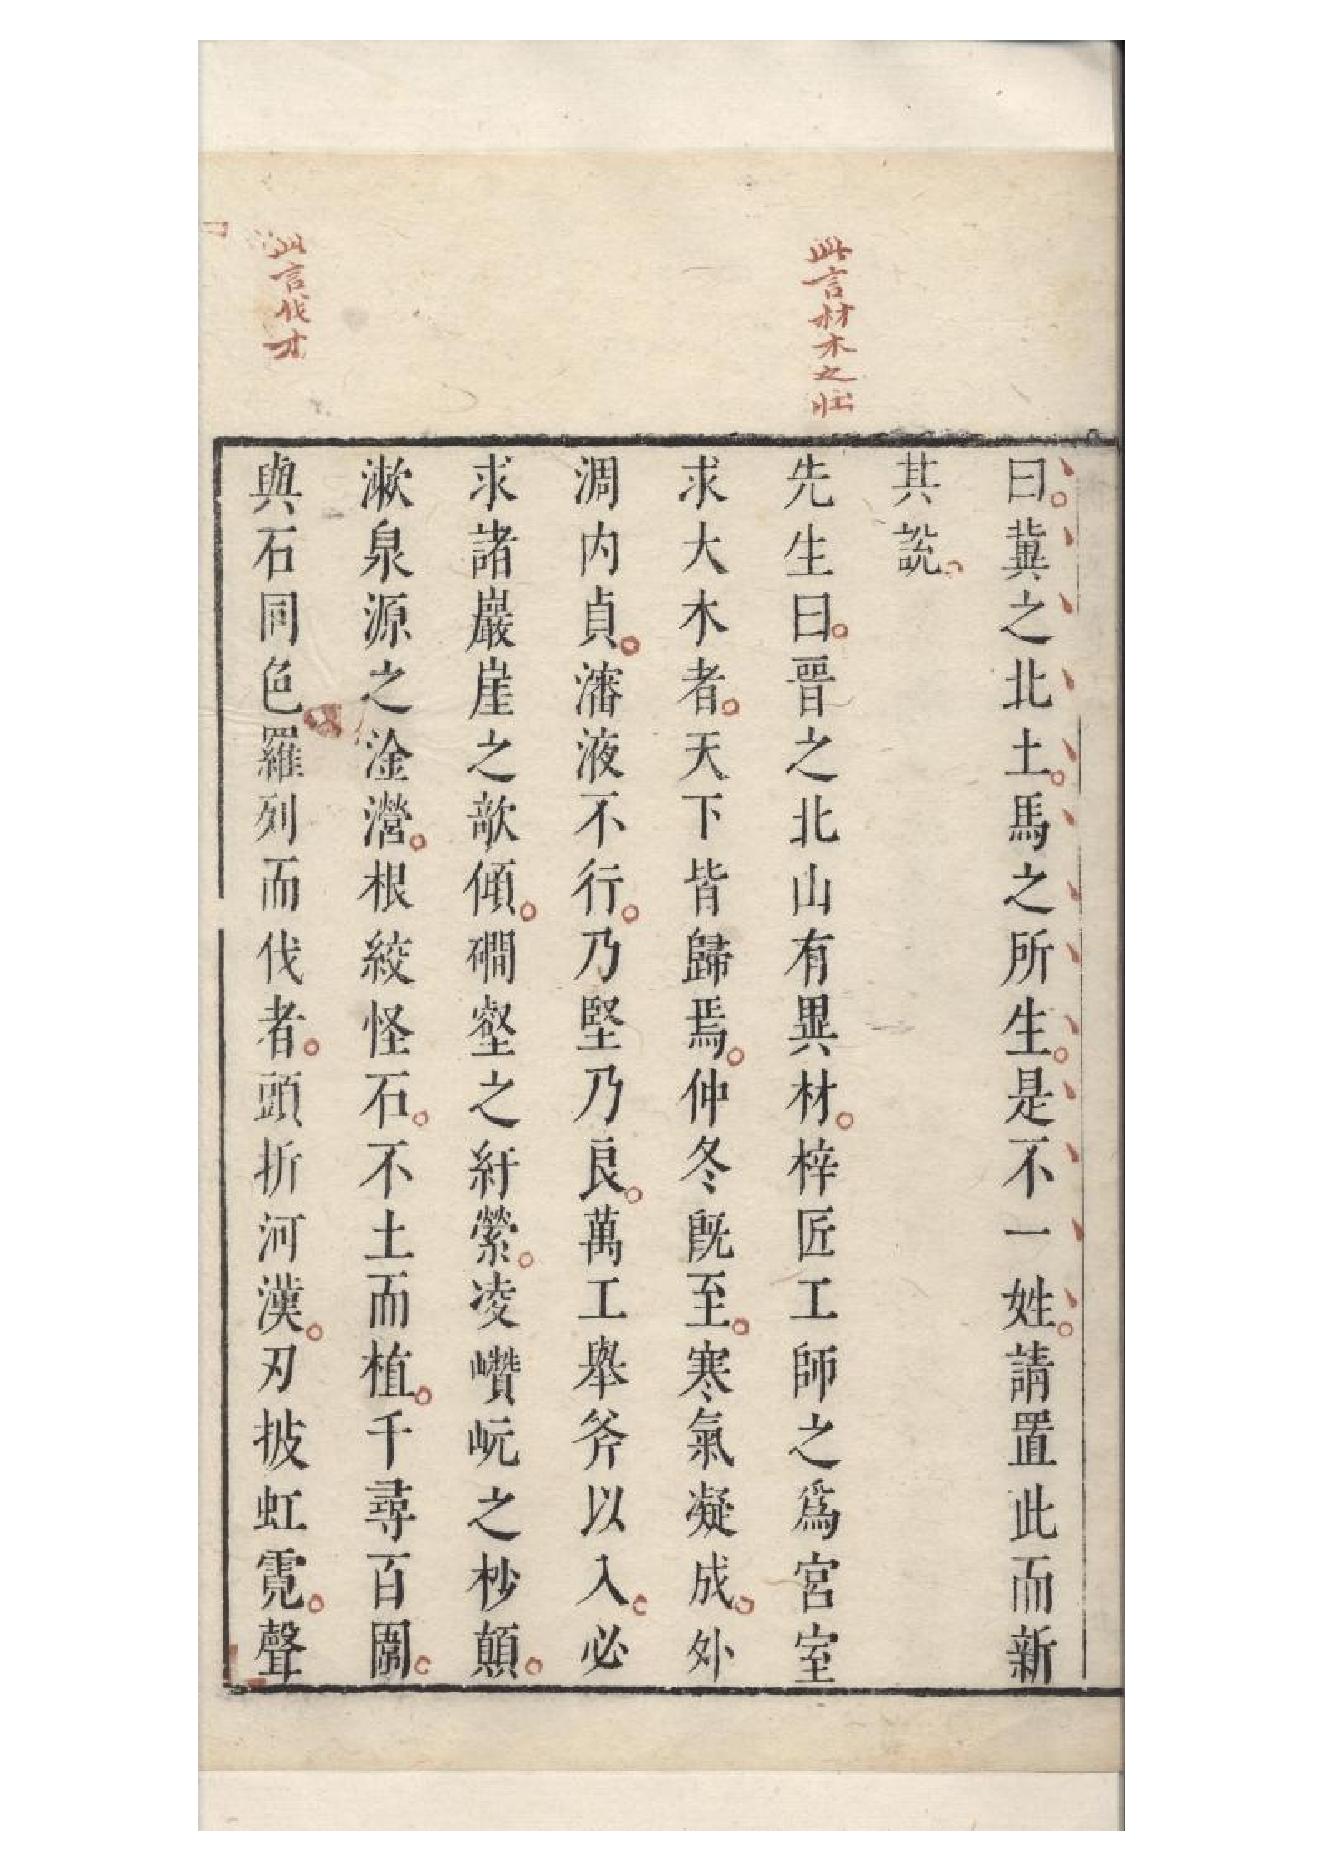 此言材木之壯
此言伐才
曰冀之北土馬之所生是不一姓請置此而新
其說
先生曰晉之北山有異材梓匠工師之為宮室
求大木者天下皆歸焉仲冬既至寒氣凝成外
凋内貞瀋液不行乃堅乃良萬工舉斧以入必
求諸巖崖之欹傾磵壑之紆縈凌巑岏之杪顛
漱泉源之淦瀯根絞怪石不土而植千尋百圍
與石同色羅列而伐者頭抗河漢刃披虹霓聲